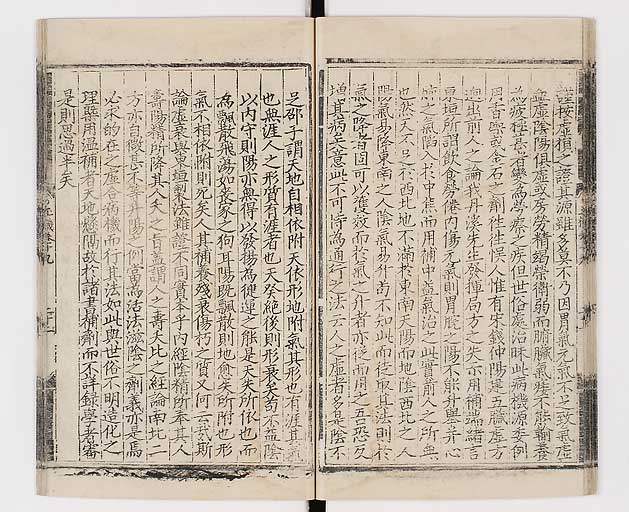 謹按虛損之證其源雖多莫不乃因胃氣元氣不足致氣虛
血虛陰陽俱虛或房勞精竭榮衛弱而腑臟氣虛不能輸養
為疲極甚者變為勞瘵之疾但世俗處治昧此病機源委例
用香熱或金石之劑往往誤人惟有宋錢仲陽是五臟虛方
迥出前人之論我丹溪先生發揮局方之失亦用補端緒言
東垣所謂飲食勞倦內傷元氣則胃脘之陽不能升舉并心
肺之氣陷入於中焦而用補中益氣治之此實前人之所無
也然天不足於西北地不滿於東南天陽而地陰西北之人
陽氣易降東南之人陰氣易升苟不知此而徒取其法則於
氣之降者固可以獲效而於氣之升者亦從而用之吾恐反
增其病矣噫此不可恃為通行之法云人之虛者多是陰不
足邵子謂天地自相依附天依形地附氣其形也有涯其氣
也無涯人之形質有涯者也天癸絕後則形衰矣苟不益陰
以內守則陽亦無得以發揚為健運之能是天失所依也而
為飄散飛蕩如喪家之狗耳陽既飄散則地愈失所附也形
氣不相依附則死矣人其補養殘衰傷朽之質又何云哉斯
論虛衰與東垣製法雖證不同實本乎內經陰精所奉其人
壽陽精所降其人夭之旨蓋謂人之壽夭比之經論南北二
方亦自微甚不升陽之例當為活法滋陰之劑義亦是焉
必求的在之虛合病機而行其法如此與世俗不明造化之
理藥用溫補者天地懸隔故於諸書補劑而不詳錄學者審
是則思過半矣